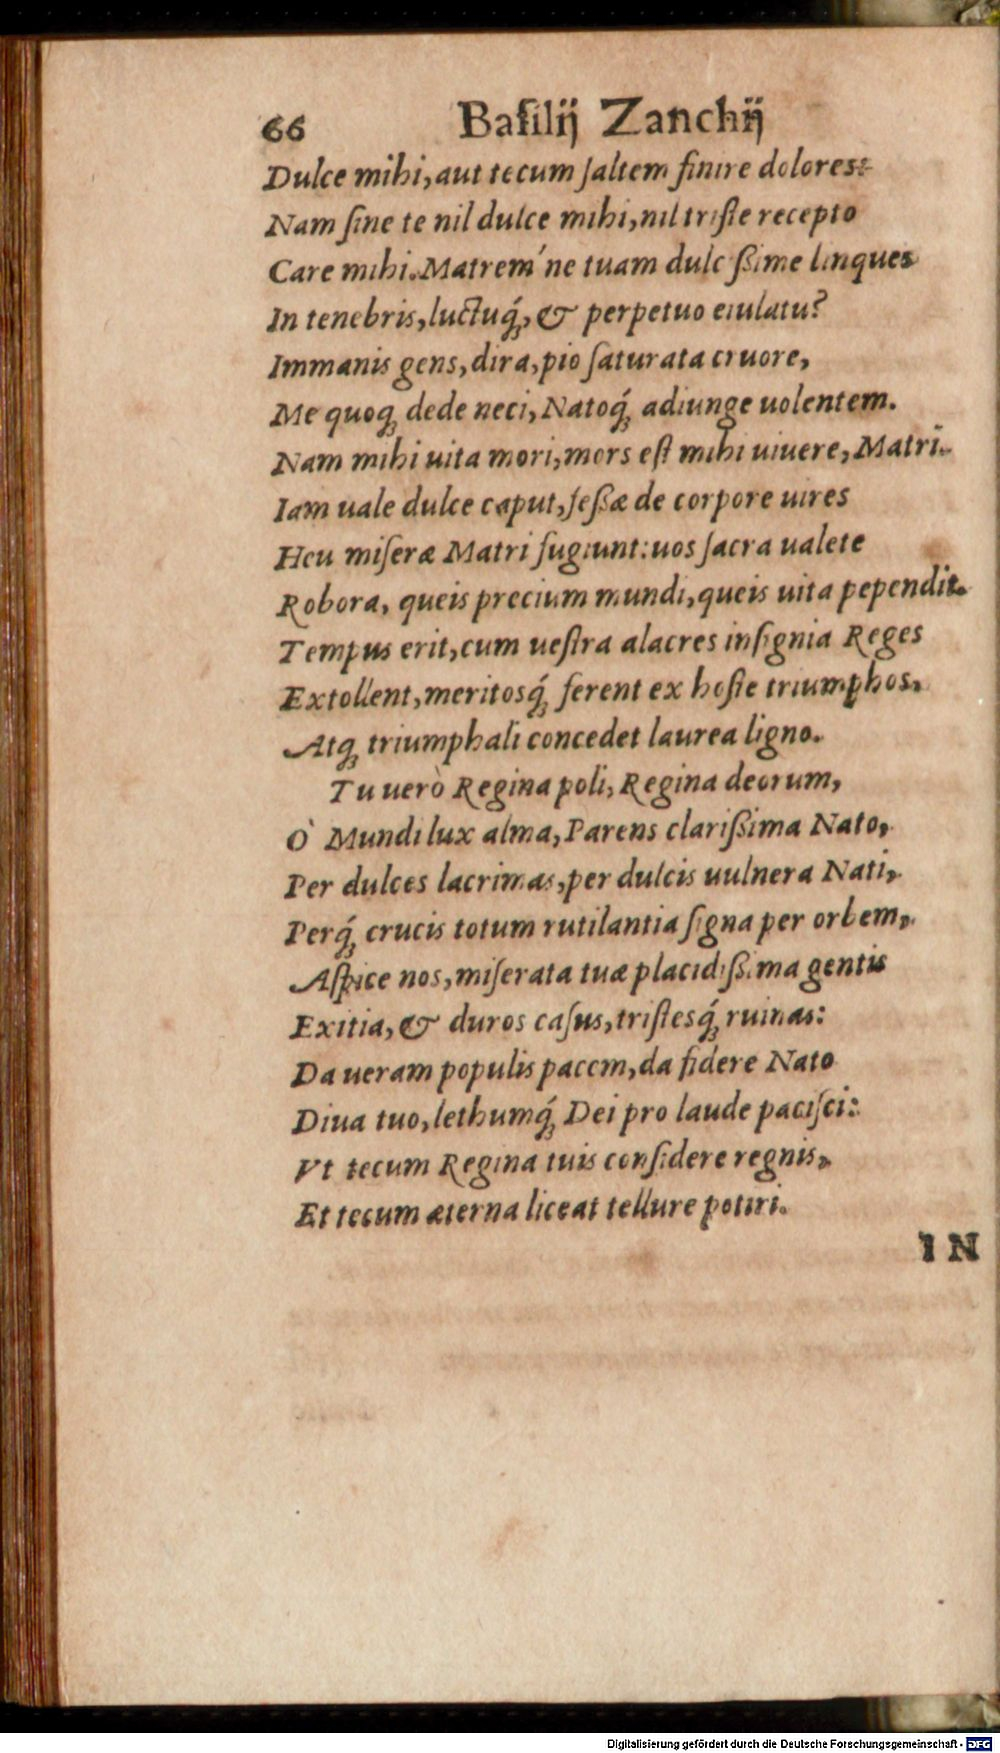 66 Baſilij Zanchij
Dulce mihi, aut tecum ſaltem finire dolores:
Nam ſine te nil dulce mihi, nil triſte recepto
Care mihi. Matrem´ne tuam dulcißime linques
In tenebris, luctuq́ꝫ, & perpetuo eiulatu?
Immanis gens, dira, pio ſaturata cruore,
Me quoqꝫ dede neci, Natoq́ꝫ adiunge uolentem.
Nam mihi uita mori, mors eſt mihi uiuere, Matri.
Iam uale dulce caput, feßæ de corpore uires
Heu miſeræ Matri fugiunt: uos ſacra ualete
Robora, queis precium mundi, queis uita pependit.
Tempus erit, cum ueſtra alacres inſignia Reges
Extollent, meritosq́ꝫ ferent ex hoſte triumphos,
Atqꝫ triumphali concedet laurea ligno.
Tu uerò Regina poli, Regina deorum,
Ò Mundi lux alma, Parens clarißima Nato,
Per dulces lacrimas, per dulcis uulnera Nati,
Perq́ꝫ crucis totum rutilantia ſigna per orbem,
Aſpice nos, miſerata tuæ placidißima gentis
Exitia, & duros caſus, triſtesq́ꝫ ruinas:
Da ueram populis pacem, da fidere Nato
Diua tuo, lethumq́ꝫ Dei pro laude paciſci:
Vt tecum Regina tuis conſidere regnis,
Et tecum æterna liceat tellure potiri.
IN
Digitalisierung gefördert durch die Deutsche Forschungsgemeinschaft - DFG